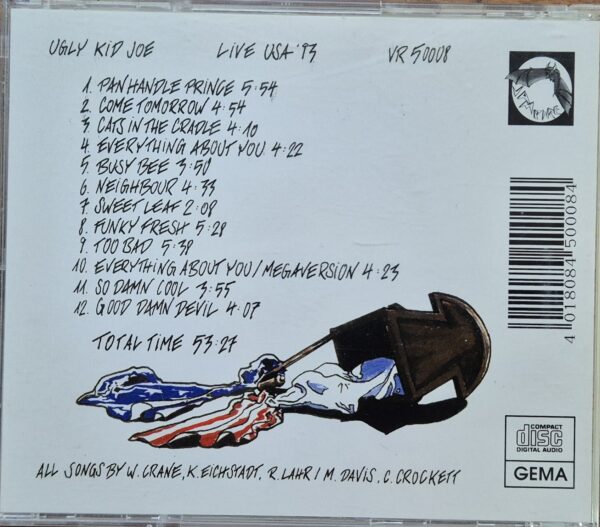 UGLY KID JOE LIVE USA '93 VR 50008
1. PANHANDLE PRINCE 5:54
2. COME TOMORROW 4:54
3. CATS IN THE CRADLE 4:10
4. EVERYTHING ABOUT YOU 4:22
5. BUSY BEE 3:50
6. NEIGHBOUR 4:33
7. SWEET LEAF 2:08
8. FUNKY FRESH 5:28
9. TOO BAD 5:38
10. EVERYTHING ABOUT YOU/MEGAVERSION 4:23
11. SO DAMN COOL 3:55
12. GOOD DAMN DEVIL 4:07
TOTAL TIME 53:27
4 018084 500084
COMPACT
disc
DIGITAL AUDIO
GEMA
ALL SONGS BY W. CRANE, K. EICHSTADT, R. LAHR / M. DAVIS, C. CROCKETT